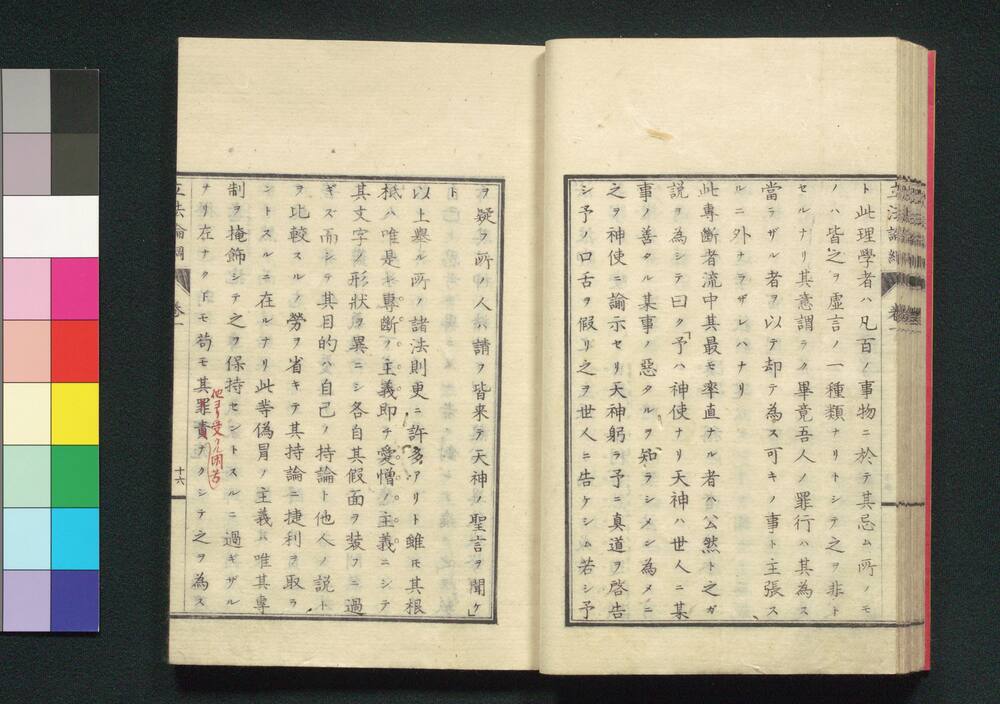 ト此理學者ハ凡百ノ事物ニ於テ其忌ム所ノモ
ノハ皆之ヲ虚言ノ一種類ナリトシテ之ヲ非ト
セルナリ其意謂ラク畢竟吾人ノ罪行ハ其為ス
當ラザル者ヲ以テ却テ為ス可キノ事ト主張ス
ルニ外ナラザレハナリ
此專斷者流中其最モ率直ナル者ハ公然ト之ガ
説ヲ為シテ曰ク「予ハ神使ナリ天神ハ世人ニ某
事ノ善タル某事ノ惡タルヲ知ラシメン為メニ
之ヲ神使ニ諭示セリ天神躬ラ予ニ真道ヲ啓告
シ予ノ口舌ヲ假リ之ヲ世人ニ告ケシム若シ予
ヲ疑フ所ノ人ハ請フ皆来テ天神ノ聖言ヲ聞ケ」
ト
以上舉ル所ノ諸法則更ニ許多アリト雖モ其根
柢ハ唯是レ專斷ノ主義即チ愛憎ノ主義ニシテ
其文字ノ形狀ヲ異ニシ各自其假面ヲ装フニ過
ギズ而シテ其目的ハ自己ノ持論ト他人ノ説ト
ヲ比較スルノ勞ヲ省キテ其持論ニ捷利ヲ取ラ
ントスルニ在ルナリ此等偽冒ノ主義ハ唯其專
制ヲ掩飾シテ之ヲ保持セントスルニ過ギザル
ナリ在ナク下モ苟モ其罪責ナクシテ之ヲ為ス
他ヨリ受クル困苦
立法論綱 卷一
十六